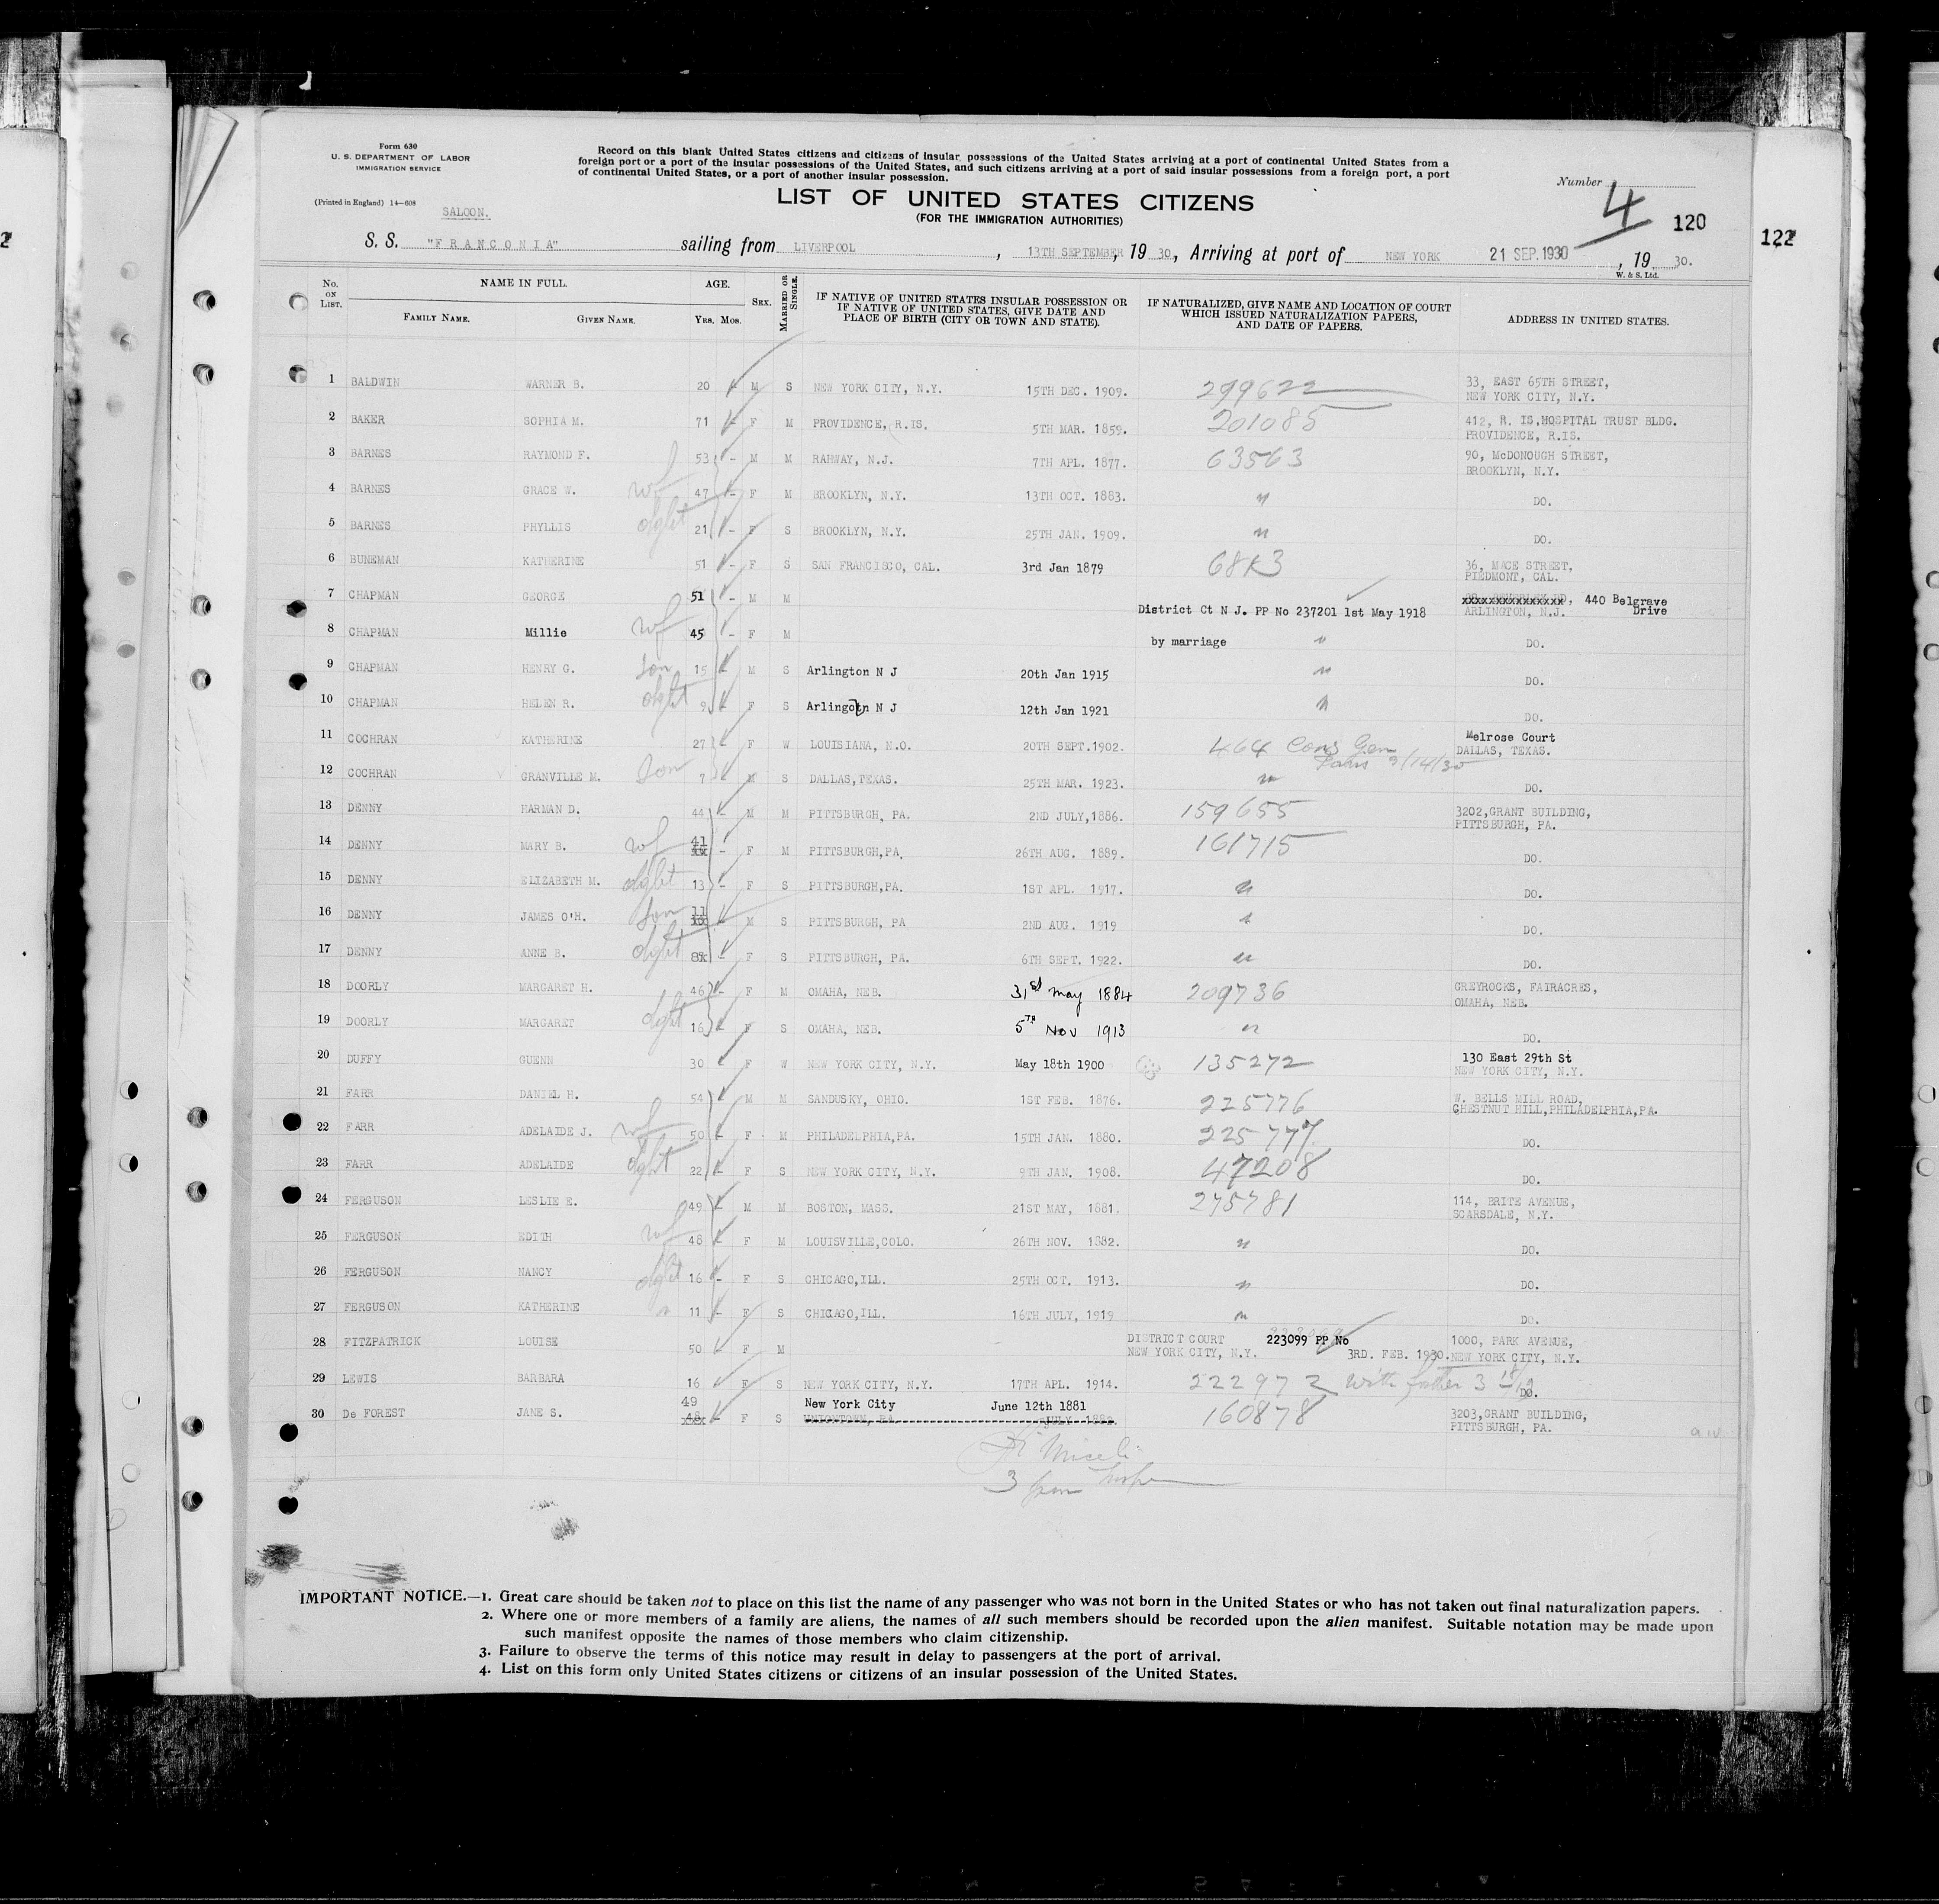 Form 630
U. S. DEPARTMENT OF LABOR
IMMIGRATION SERVICE
(Printed in England) 14—608
SALOON.
Record on this blank United States citizens and citizens of insular possessions of the United States arriving at a port of continental United States from a
foreign port or a port of the insular possessions of the United States, and such citizens arriving at a port of said insular possessions from a foreign port, a port
of continental United States, or a port of another insular possession.
LIST OF UNITED STATES CITIZENS
(FOR THE IMMIGRATION AUTHORITIES)
Number 4
120
122
S. S. "FRANCONIA" sailing from LIVERPOOL, 13TH SEPTEMBER, 19 30, Arriving at port of NEW YORK 21 SEP. 1930, 19 30.
W. & S. Ltd.
No. ON LIST. NAME IN FULL. FAMILY NAME. GIVEN NAME. AGE. YRS. MOS. SEX. MARRIED OR SINGLE. IF NATIVE OF UNITED STATES INSULAR POSSESSION OR IF NATIVE OF UNITED STATES, GIVE DATE AND PLACE OF BIRTH (CITY OR TOWN AND STATE). IF NATURALIZED, GIVE NAME AND LOCATION OF COURT WHICH ISSUED NATURALIZATION PAPERS, AND DATE OF PAPERS. ADDRESS IN UNITED STATES.
1 BALDWIN WARNER B. 20 - M S NEW YORK CITY, N.Y. 15TH DEC. 1909. 299622 33, EAST 65TH STREET,
NEW YORK CITY, N.Y.
2 BAKER SOPHIA M. 71 - F M PROVIDENCE, R.IS. 5TH MAR. 1859. 201085 412, R. IS.HOSPITAL TRUST BLDG.
PROVIDENCE, R.IS.
3 BARNES RAYMOND F. 53 - M M RAHWAY, N.J. 7TH APL. 1877. 63563 90, McDONOUGH STREET,
BROOKLYN, N.Y.
4 BARNES GRACE W. wf 47 - F M BROOKLYN, N.Y. 13TH OCT. 1883. " DO.
5 BARNES PHYLLIS dght 21 - F S BROOKLYN, N.Y. 25TH JAN. 1909. " DO.
6 BUNEMAN KATHERINE 51 - F S SAN FRANCISCO, CAL. 3rd Jan 1879 36, MACE STREET,
PIEDMONT, CAL.
7 CHAPMAN GEORGE 51 - M M District Ct N J. PP No 237201 1st May 1918 440 Belgrave Drive
ARLINGTON, N.J.
8 CHAPMAN Millie wf 45 - F M by marriage " DO.
9 CHAPMAN HENRY G. son 15 - M S Arlington N J 20th Jan 1915 " DO.
10 CHAPMAN HELEN R. dght 9 - F S Arlingotn N J 12th Jan 1921 " DO.
11 COCHRAN KATHERINE 27 - F W LOUISIANA, N.O. 20TH SEPT.1902. 464 Cons Gen Paris 9/14/30 Melrose Court
DALLAS, TEXAS.
12 COCHRAN GRANVILLE M. son 7 - M S DALLAS,TEXAS. 25TH MAR. 1923. " DO.
13 DENNY HARMAN D. 44 - M M PITTSBURGH, PA. 2ND JULY,1886. 159655 3202,GRANT BUILDING,
PITTSBURGH, PA.
14 DENNY MARY B. wf 41 - F M PITTSBURGH,PA. 26TH AUG. 1889. 161715 DO.
15 DENNY ELIZABETH M. dght 13 - F S PITTSBURGH,PA. 1ST APL. 1917. " DO.
16 DENNY JAMES O'H. son 11 - M S PITTSBURGH, PA 2ND AUG. 1919 " DO.
17 DENNY ANNE B. dght 8 - F S PITTSBURGH, PA. 6TH SEPT. 1922. " DO.
18 DOORLY MARGARET H. 46 - F M OMAHA, NEB. 31st May 1884 209736 GREYROCKS, FAIRACRES,
OMAHA, NEB.
19 DOORLY MARGARET dght 16 - F S OMAHA, NEB. 5TH Nov 1913 " DO.
20 DUFFY GUENN 30 - F W NEW YORK CITY, N.Y. May 18th 1900 135272 130 East 29th St
NEW YORK CITY, N.Y.
21 FARR DANIEL H. 54 - M M SANDUSKY, OHIO. 1ST FEB. 1876. 225776 W. BELLS MILL ROAD,
CHESTNUT HILL,PHILADELPHIA,PA.
22 FARR ADELAIDE J. wf 50 - F M PHILADELPHIA,PA. 15TH JAN. 1880. 225777 DO.
23 FARR ADELAIDE dght 22 - F S NEW YORK CITY, N.Y. 9TH JAN. 1908. 47208 DO.
24 FERGUSON LESLIE E. 49 - M M BOSTON, MASS. 21ST MAY, 1881. 275781 114, BRITE AVENUE,
SCARSDALE, N.Y.
25 FERGUSON EDITH wf 48 - F M LOUISVILLE,COLO. 26TH NOV. 1882. " DO.
26 FERGUSON NANCY dght 16 - F S CHICAGO,ILL. 25TH OCT. 1913. " DO.
27 FERGUSON KATHERINE " 11 - F S CHICAGO,ILL. 16TH JULY, 1919 " DO.
28 FITZPATRICK LOUISE 50 - F M DISTRICT COURT 223099 PP No 1000, PARK AVENUE,
NEW YORK CITY, N.Y. 3RD. FEB. 1930. NEW YORK CITY, N.Y.
29 LEWIS BARBARA 16 F S NEW YORK CITY, N.Y. 17TH APL. 1914. 222972 with father DO.
30 De FOREST JANE S. 49 48 - F S New York City June 12th 1881 160878 3203,GRANT BUILDING,
UNIONTOWN, PA JULY 1882. PITTSBURGH, PA.
IMPORTANT NOTICE.—1. Great care should be taken not to place on this list the name of any passenger who was not born in the United States or who has not taken out final naturalization papers.
2. Where one or more members of a family are aliens, the names of all such members should be recorded upon the alien manifest. Suitable notation may be made upon
such manifest opposite the names of those members who claim citizenship.
3. Failure to observe the terms of this notice may result in delay to passengers at the port of arrival.
4. List on this form only United States citizens or citizens of an insular possession of the United States.